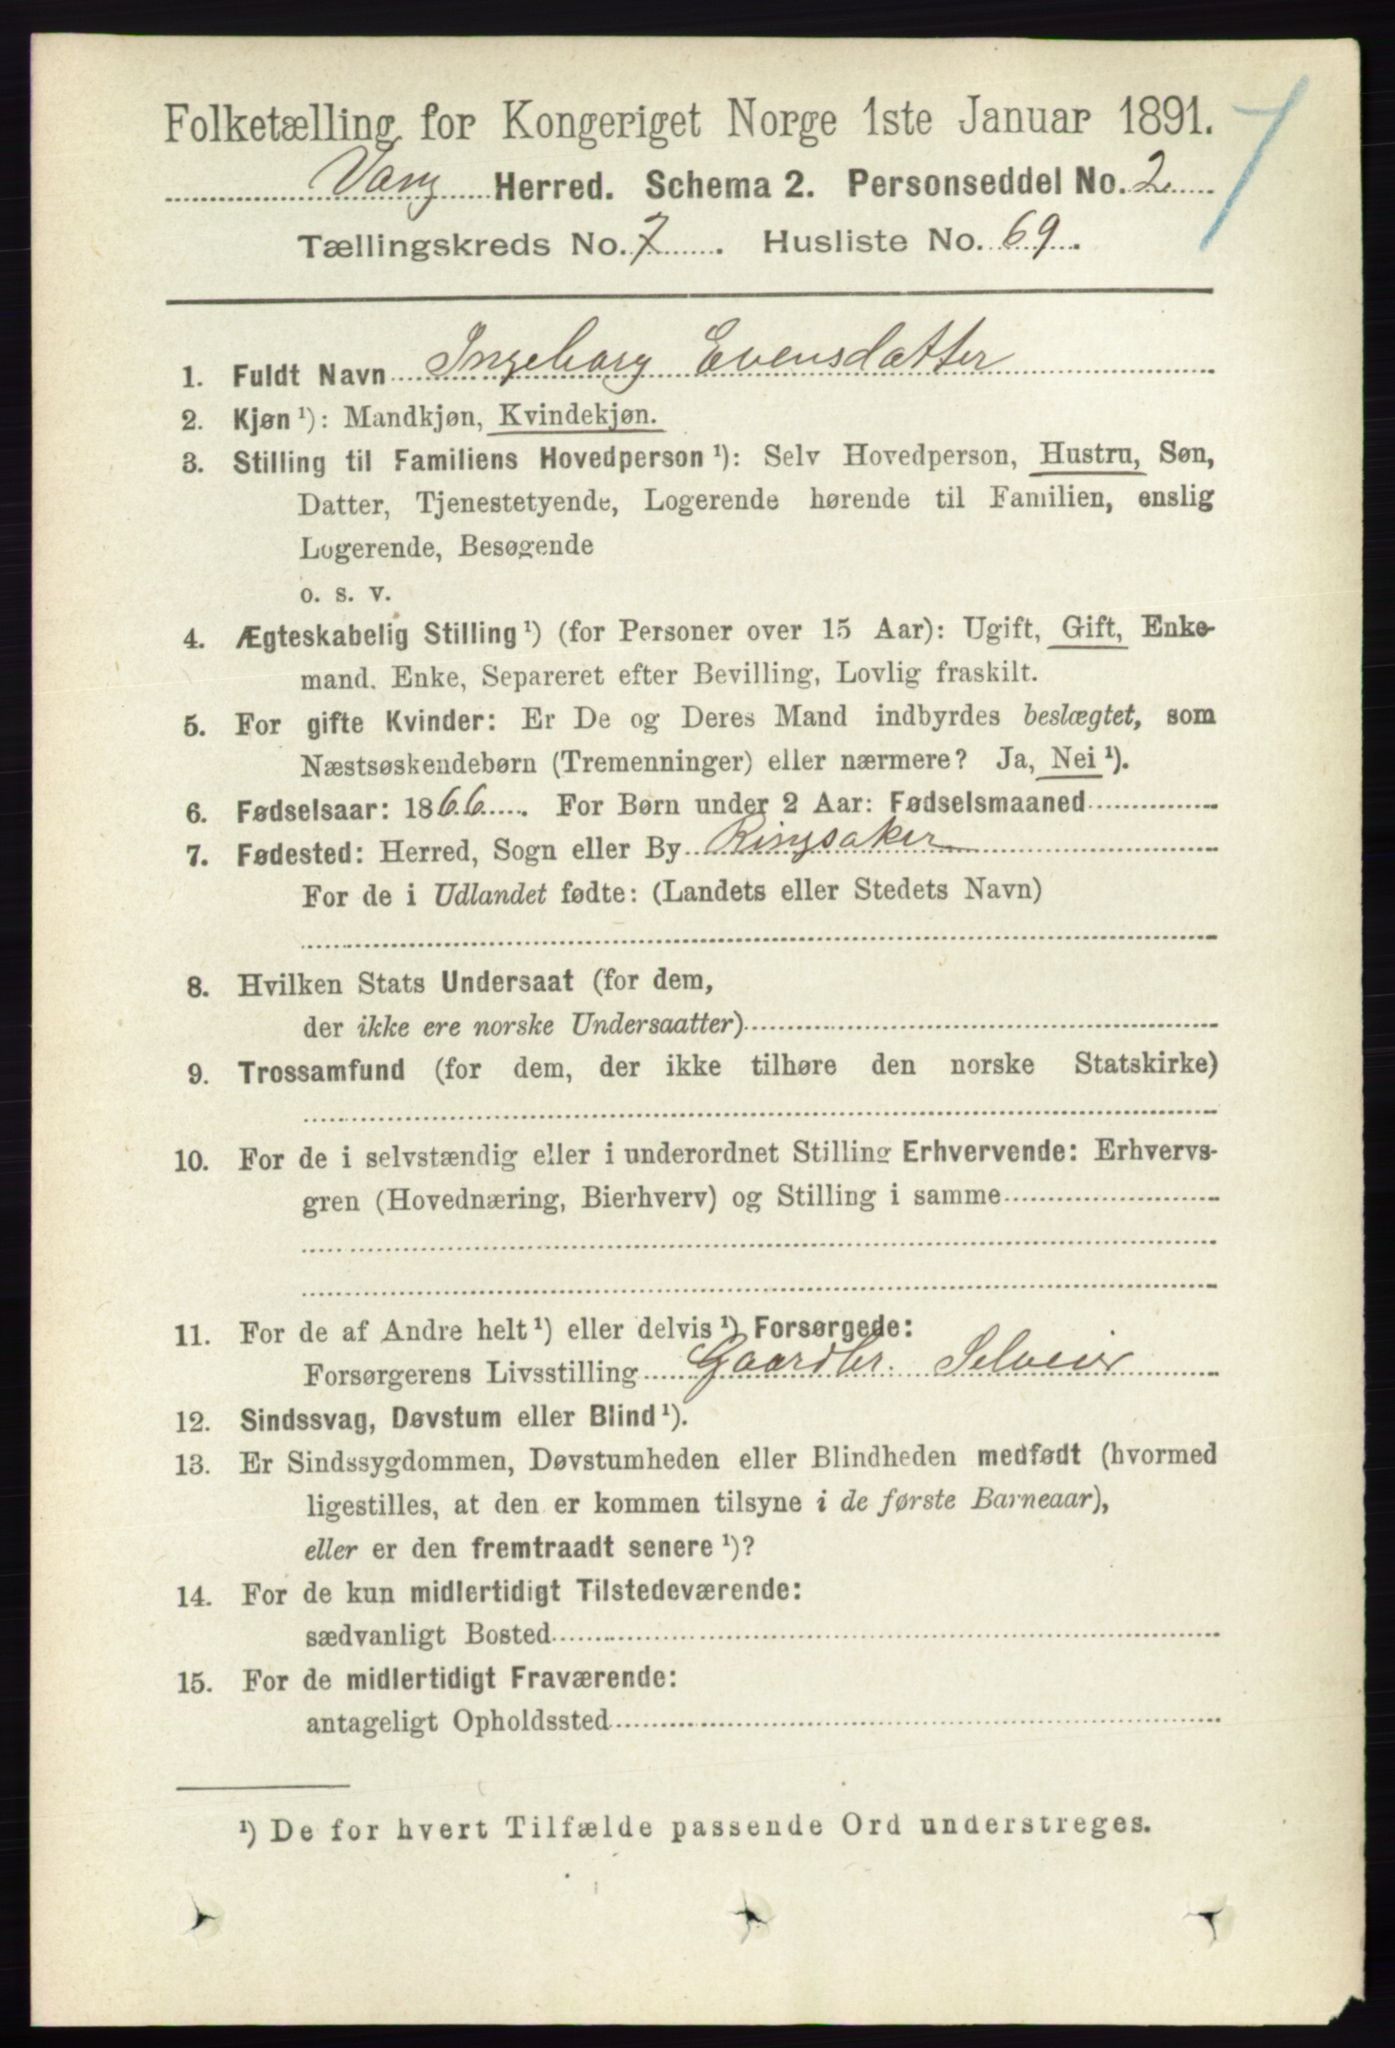 Folketælling for Kongeriget Norge 1ste Januar 1891.
7
Vang Herred. Schema 2. Personseddel No. 2
Tællingskreds No. 7. Husliste No. 69.
1. Fuldt Navn Ingeborg Evensdatter
2. Kjøn ¹): Mandkjøn, Kvindekjøn.
3. Stilling til Familiens Hovedperson ¹): Selv Hovedperson, Hustru, Søn,
Datter, Tjenestetyende, Logerende hørende til Familien, enslig
Logerende, Besøgende
o. s. v.
4. Ægteskabelig Stilling ¹) (for Personer over 15 Aar): Ugift, Gift, Enke-
mand. Enke, Separeret efter Bevilling, Lovlig fraskilt.
5. For gifte Kvinder: Er De og Deres Mand indbyrdes beslægtet, som
Næstsøskendebørn (Tremenninger) eller nærmere? Ja, Nei ¹).
6. Fødselsaar: 1866. For Børn under 2 Aar: Fødselsmaaned
7. Fødested: Herred, Sogn eller By Ringsaker
For de i Udlandet fødte: (Landets eller Stedets Navn)
8. Hvilken Stats Undersaat (for dem,
der ikke ere norske Undersaatter)
9. Trossamfund (for dem, der ikke tilhøre den norske Statskirke)
10. For de i selvstændig eller i underordnet Stilling Erhvervende: Erhvervs-
gren (Hovednæring, Bierhverv) og Stilling i samme
11. For de af Andre helt ¹) eller delvis ¹) Forsørgede:
Forsørgerens Livsstilling Gaardbr. Selveier
12. Sindssvag, Døvstum eller Blind ¹).
13. Er Sindssygdommen, Døvstumheden eller Blindheden medfødt (hvormed
ligestilles, at den er kommen tilsyne i de første Barneaar),
eller er den fremtraadt senere ¹)?
14. For de kun midlertidigt Tilstedeværende:
sædvanligt Bosted
15. For de midlertidigt Fraværende:
antageligt Opholdssted
¹) De for hvert Tilfælde passende Ord understreges.